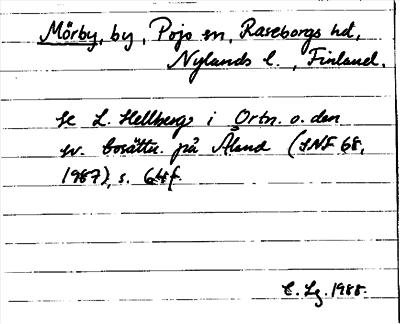 Mörby, by, Pojo sn, Raseborgs hd,
Nylands l., Finland.
Se L. Hellbergs i Ortn. o. den
sv. bosättn. på Åland (SNF 68,
1987), s. 64f.
1988.